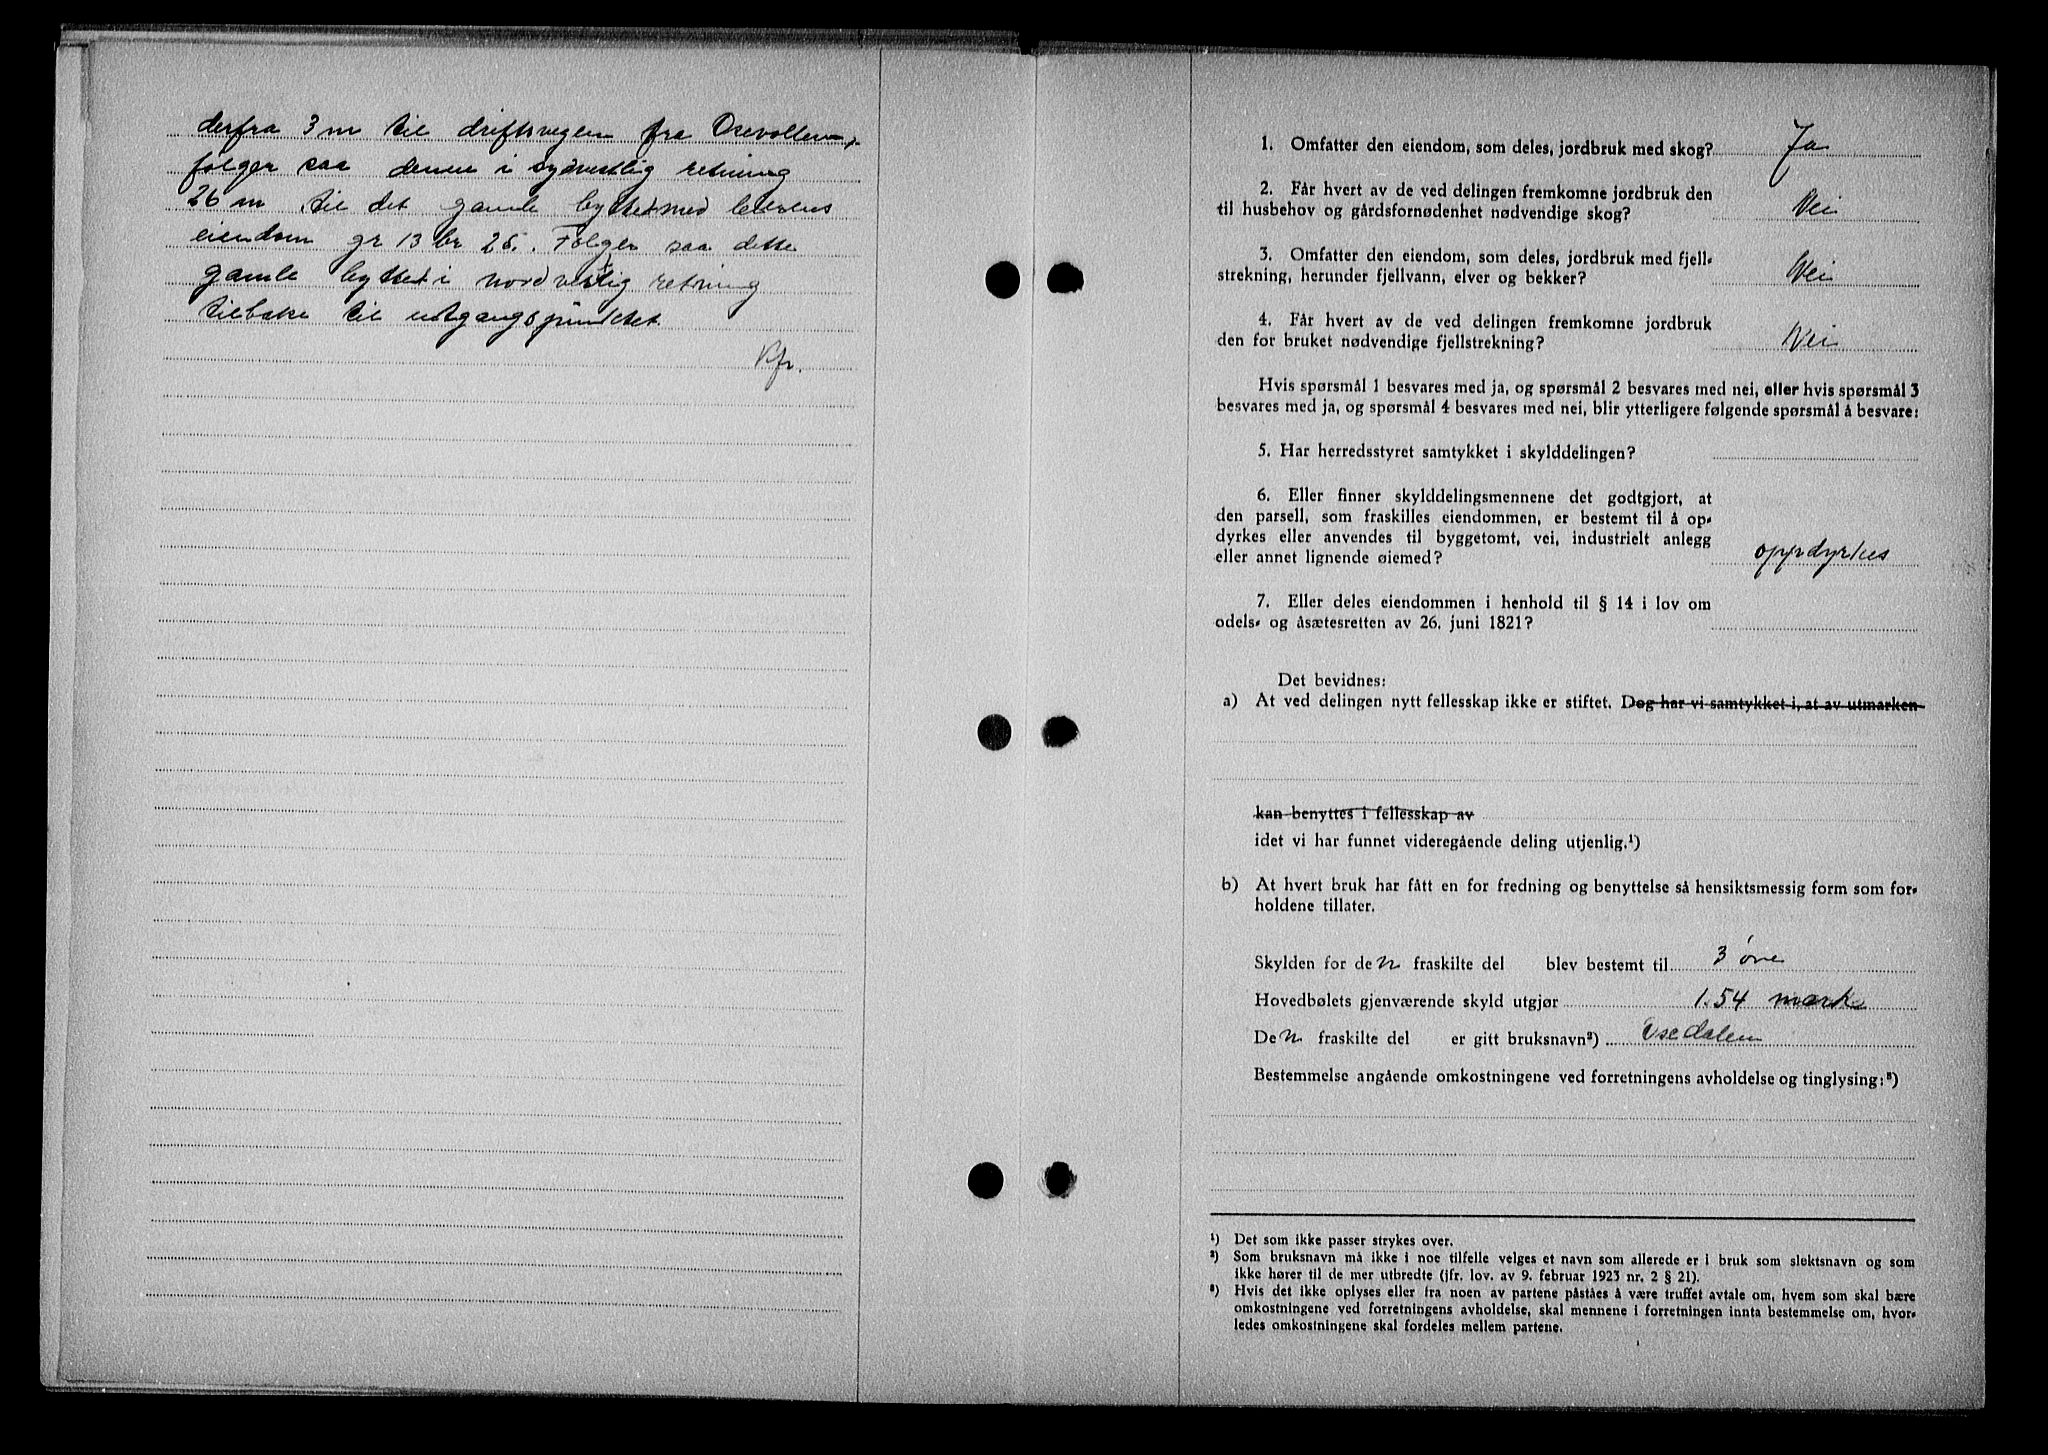 derfra 3 m til driftsvegen fra Osevollen,
følger saa denne i sydvestlig retning
26 m til det gamle byttet med
eiendom gr 13 br 25. Følger saa dette
gamle byttet i nordvestlig retning
tilbake til utgangspunktet.
Kfr.
1. Omfatter den eiendom, som deles, jordbruk med skog? Ja
2. Får hvert av de ved delingen fremkomne jordbruk den
til husbehov og gårdsfornødenhet nødvendige skog? Nei
3. Omfatter den eiendom, som deles, jordbruk med fjell-
strekning, herunder fjellvann, elver og bekker? Nei
4. Får hvert av de ved delingen fremkomne jordbruk
den for bruket nødvendige fjellstrekning? Nei
Hvis spørsmål 1 besvares med ja, og spørsmål 2 besvares med nei, eller hvis spørsmål 3
besvares med ja, og spørsmål 4 besvares med nei, blir ytterligere følgende spørsmål å besvare:
5. Har herredsstyret samtykket i skylddelingen?
6. Eller finner skylddelingsmennene det godtgjort, at
den parsell, som fraskilles eiendommen, er bestemt til å op-
dyrkes eller anvendes til byggetomt, vei, industrielt anlegg
eller annet lignende øiemed? opyrdyrkes
7. Eller deles eiendommen i henhold til § 14 i lov om
odels- og åsætesretten av 26. juni 1821?
Det bevidnes:
a) At ved delingen nytt fellesskap ikke er stiftet. Dog har vi samtykket i, at av utmarken
kan benyttes i fellesskap av
idet vi har funnet videregående deling utjenlig.¹)
b) At hvert bruk har fått en for fredning og benyttelse så hensiktsmessig form som for-
holdene tillater.
Skylden for den fraskilte del blev bestemt til 3 øre
Hovedbølets gjenværende skyld utgjør 1.54 mark
Den fraskilte del er gitt bruksnavn²) Osedalen
Bestemmelse angående omkostningene ved forretningens avholdelse og tinglysing:³)
¹) Det som ikke passer strykes over.
²) Som bruksnavn må ikke i noe tilfelle velges et navn som allerede er i bruk som slektsnavn og som
ikke hører til de mer utbredte (jfr. lov. av 9. februar 1923 nr. 2 § 21).
³) Hvis det ikke oplyses eller fra noen av partene påståes å være truffet avtale om, hvem som skal bære
omkostningene ved forretningens avholdelse, skal mennene i forretningen innta bestemmelse om, hvor-
ledes omkostningene skal fordeles mellem partene.